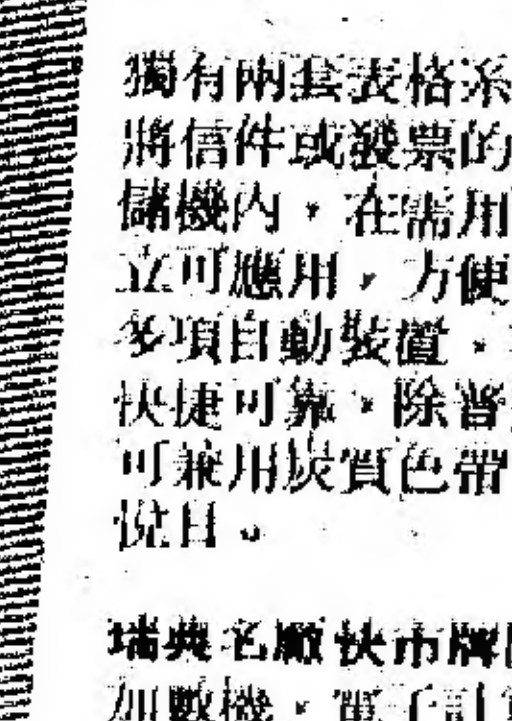 獨有兩套表格系
將信件或發票的
儲機內，在需用
立可應用，方便
多項自動裝置，
快捷可靠，除普
可兼用炭質色帶
悅目。
瑞典名廠快巿牌
加數機，電子計